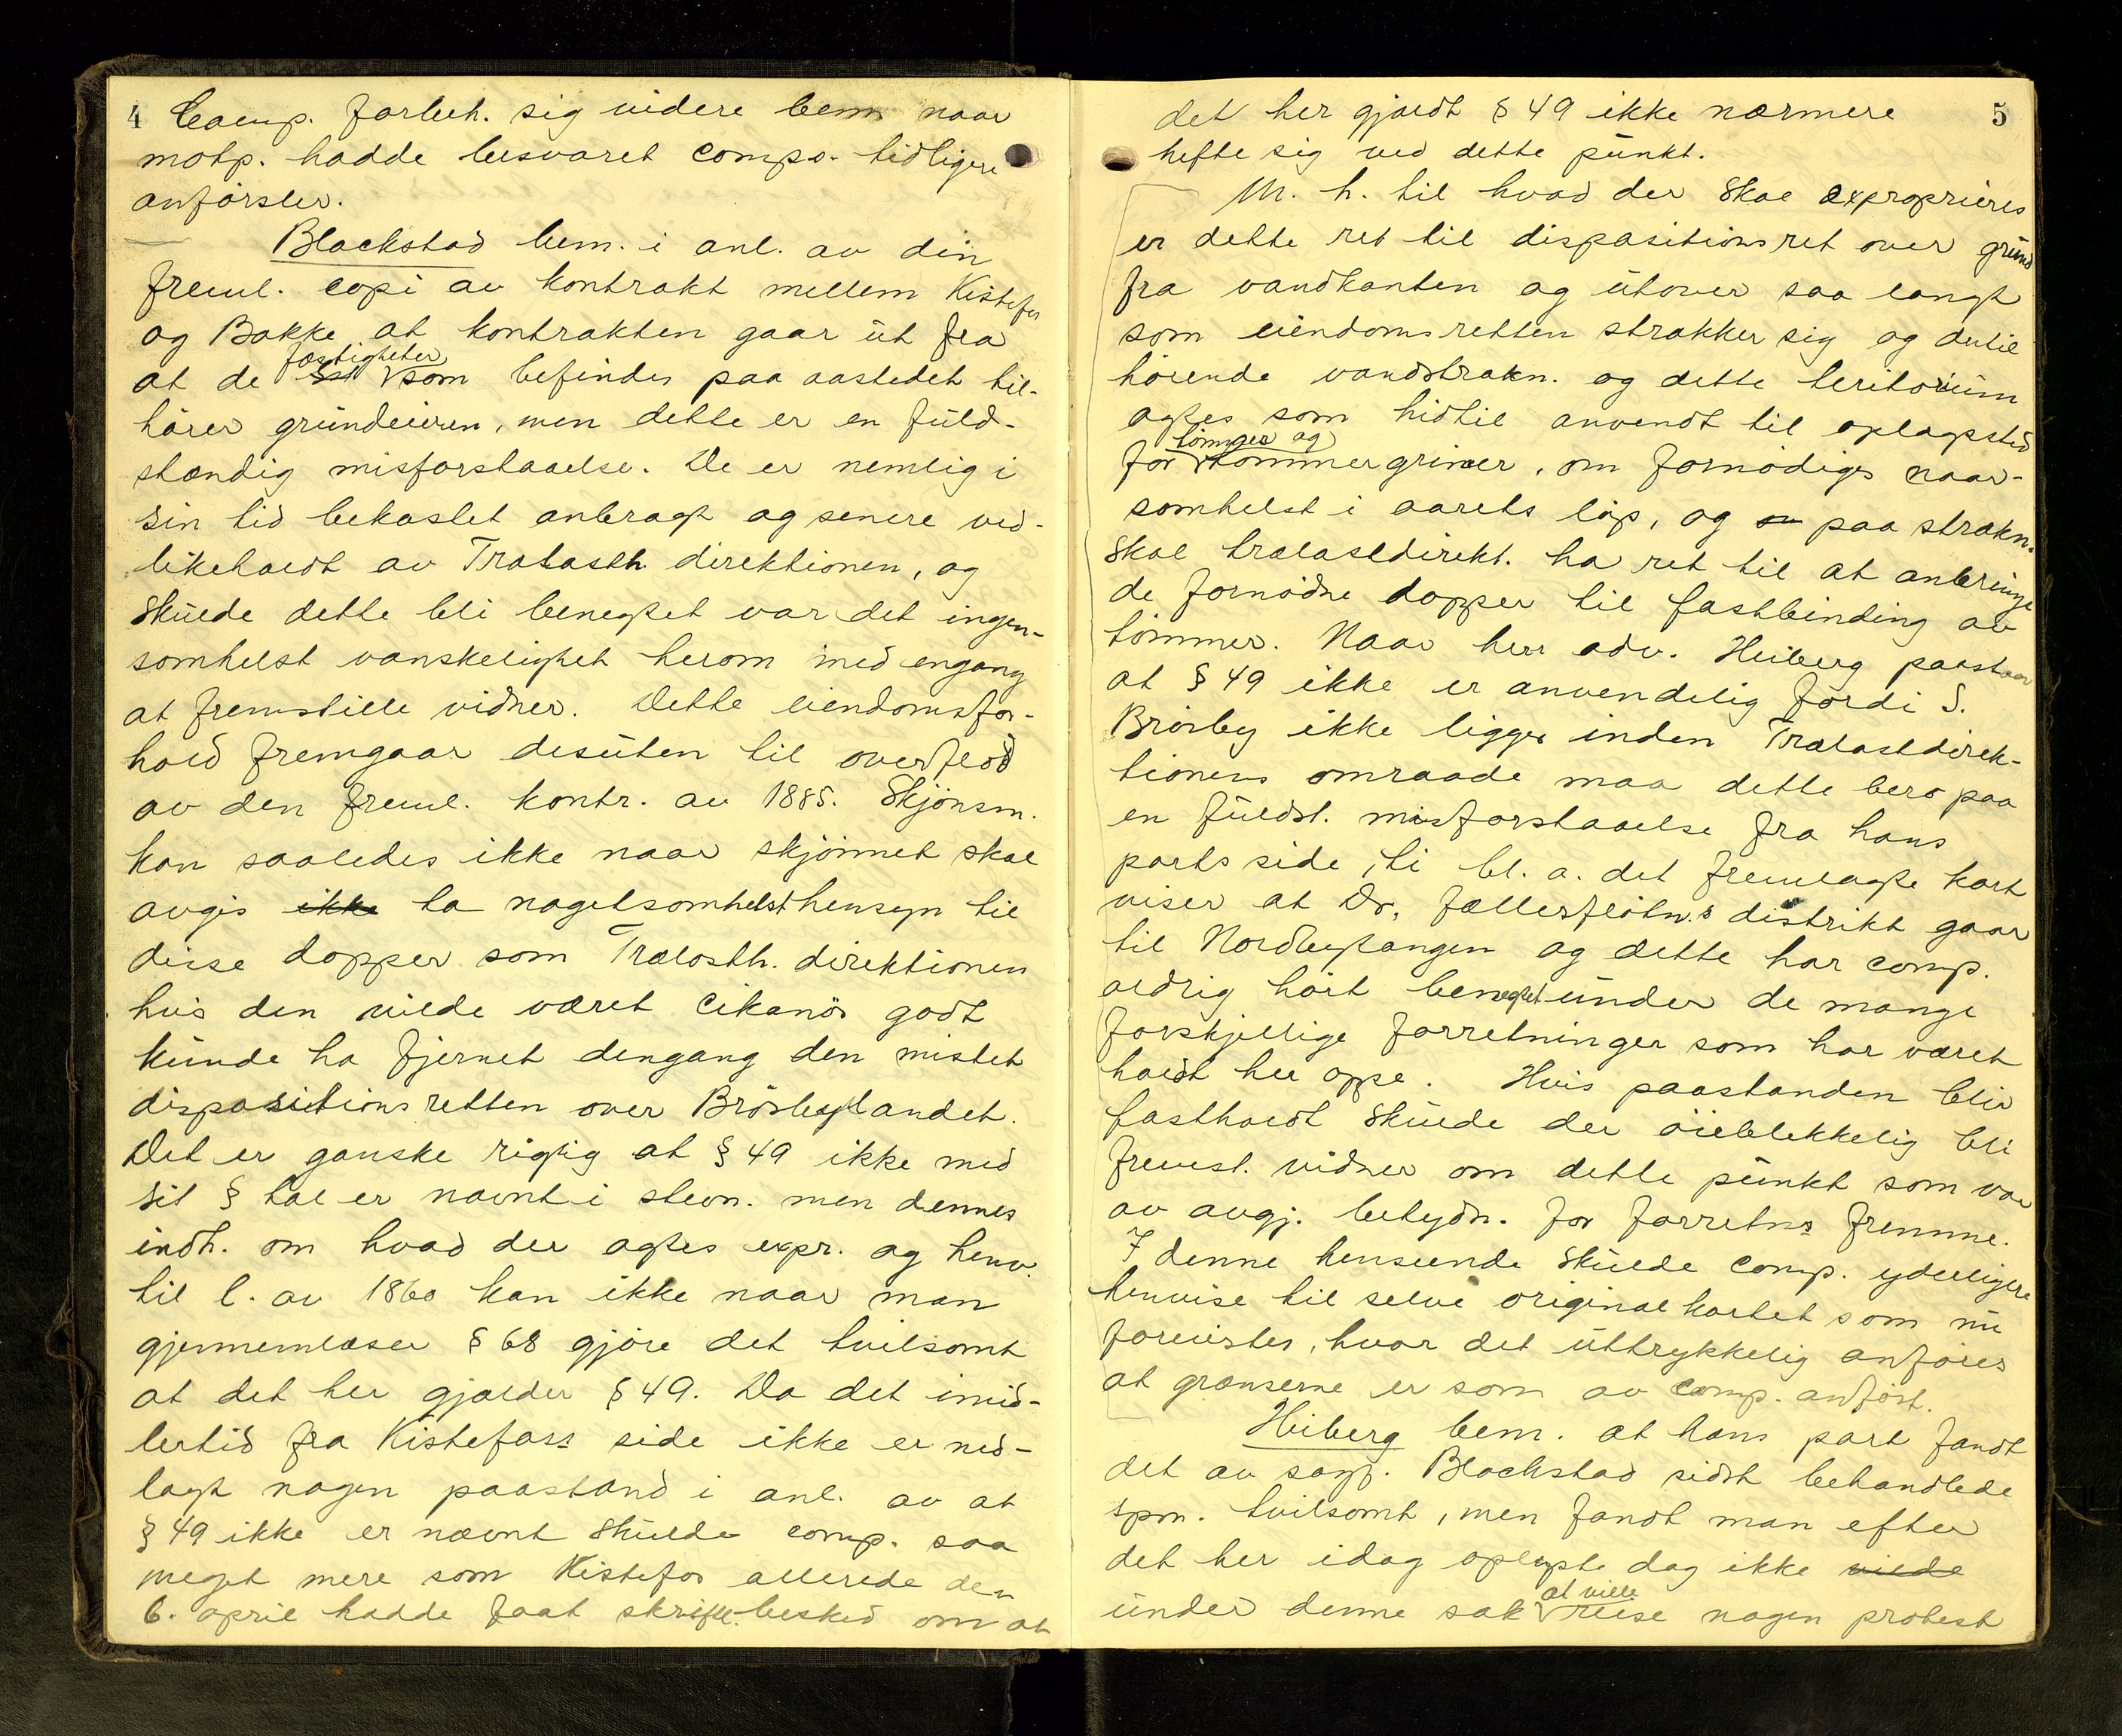 4 Comp. forbeh. sig videre bem naar
motp. hadde besvaret comps. tidligere
anførsler.
Blackstad bem. i anl. av din
freml. copi av kontrakt mellem Kistefos
og Bakke at kontrakten gaar ut fra
at de fæstigheter som befindes paa aastedet til-
hører grundeieren, men dette er en fuld-
stændig misforstaaelse. De er nemlig i
sin tid bekostet anbragt og senere ved-
likeholdt av Trælasth direktionen, og
skulde dette bli benegtet var det ingen-
somhelst vanskelighet herom med engang
at fremstille vidner. Dette eiendomsfor-
hold fremgaar desuten til overflod
av den freml. kontr. av 1885. Skjønsm.
kan saaledes ikke naar skjønnet skal
avgis ikke ta nogetsomhelst hensyn til
disse dopper som Trælasth. direktionen
hvis den vilde været cikanøs godt
kunde ha fjernet dengang den mistet
dispositionsretten over Brørbylandet.
Det er ganske rigtig at § 49 ikke med
sit § tal er nævnt i stevn. men dennes
indh. om hvad der agtes expr. og henv.
til l. av 1860 kan ikke naar man
gjennemlæser § 68 gjøre det tvilsomt
at det her gjælder § 49. Da det imid-
lertid fra Kistefoss side ikke er ned-
lagt nogen paastand i anl. av at
§ 49 ikke er nævnt skulde comp. saa
meget mere som Kistefos allerede den
6. april hadde faat skriftl. besked om at
det her gjældt § 49 ikke nærmere 5
hefte sig ved dette punkt.
M. h. til hvad der skal exproprieres
er dette ret til dispositionsret over grund
fra vandkanten og utover saa langt
som eiendomsretten strækker sig og dertil
hørende vandstrækn. og dette teritorium
agtes som hidtil anvendt til oplagssted
for tømmer og tømmergriner, om fornødiges naar-
somhelst i aarets løp, og paa strækn.
skal trælastdirekt. ha ret til at anbringe
de fornødne dopper til fastbinding av
tømmer. Naar herr adv. Heiberg paastaar
at § 49 ikke er anvendelig fordi S.
Brørby ikke ligger inden Trælastdirek-
tionens omraade maa dette bero paa
en fuldst. misforstaaelse fra hans
parts side, ti bl. a. det fremlagte kart
viser at Dr. fællesfløtn.s distrikt gaar
til Nordbytangen og dette har comp.
aldrig hørt benegtet under de mange
forskjellige forretninger som har været
holdt her oppe. Hvis paastanden blir
fastholdt skulde der øieblikkelig bli
fremst. vidner om dette punkt som var
av avgj. betydn. for forretns fremme.
I denne henseende skulde comp. yderligere
henvise til selve originalkartet som nu
forevistes, hvor det uttrykkelig anføres
at grænserne er som av comp. anført.
Heiberg bem. at hans part fandt
det av sagf. Blackstad sidst behandlede
spm. tvilsomt, men fandt man efter
det her idag oplyste dog ikke vilde
under denne sak at ville reise nogen protest